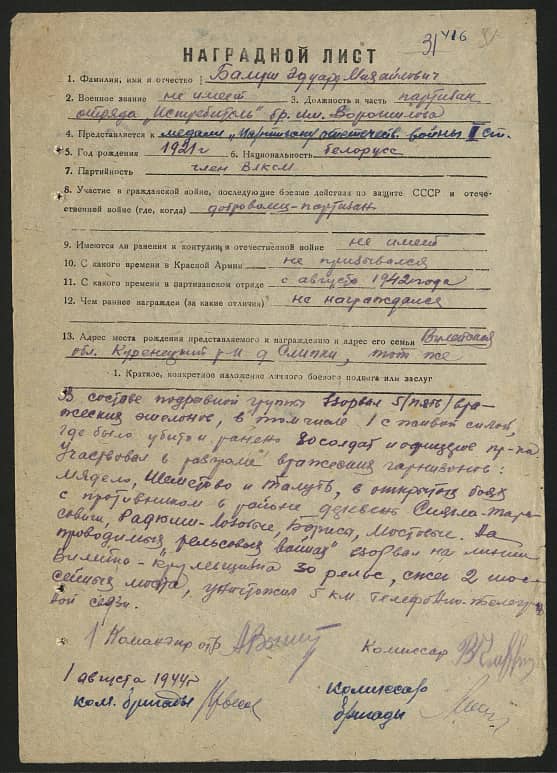 31 416
НАГРАДНОЙ ЛИСТ
1. Фамилия, имя и отчество Эдуард Михайлович
2. Военное звание не имеет 3. Должность и часть партизан
отряда „Истребитель" бр. им. Ворошилова
4. Представляется к медали „Партизану отечеств. войны II ст.
5. Год рождения 1921 г 6. Национальность белорусс
7. Партийность член ВЛКСМ
8. Участие в гражданской войне, последующие боевые действия по защите СССР и отече-
ственной войне (где, когда) доброволец-партизан
9. Имеются ли ранения и контузии в отечественной войне не имеет
10. С какого времени в Красной Армии не призывался
11. С какого времени в партизанском отряде с августа 1942 года
12. Чем раннее награжден (за какие отличия) не награждался
13. Адрес места рождения представляемого к награждению и адрес его семьи Вилейская
обл. Куренецкий р-н д Слипки, тот же
1. Краткое, конкретное изложение личного боевого подвига или заслуг
В составе подрывной группы взорвал 5 (пять) вра-
жеских эшелонов, в том числе 1 с живой силой,
где было убито и ранено 80 солдат и офицеров пр-ка
Участвовал в разгроме вражеских гарнизонов:
Мядель, и в открытых боях
с противником в районе деревень
Мостовые. На
проводимых „рельсовых войнах" взорвал на линии
Вилейка - 30 рельс, сжег 2 шос-
сейных моста, уничтожил 5 км. телефонно-телегр
ной связи.
Командир отр. Комиссар
1 августа 1944 г
ком. бригады комиссар
бригады